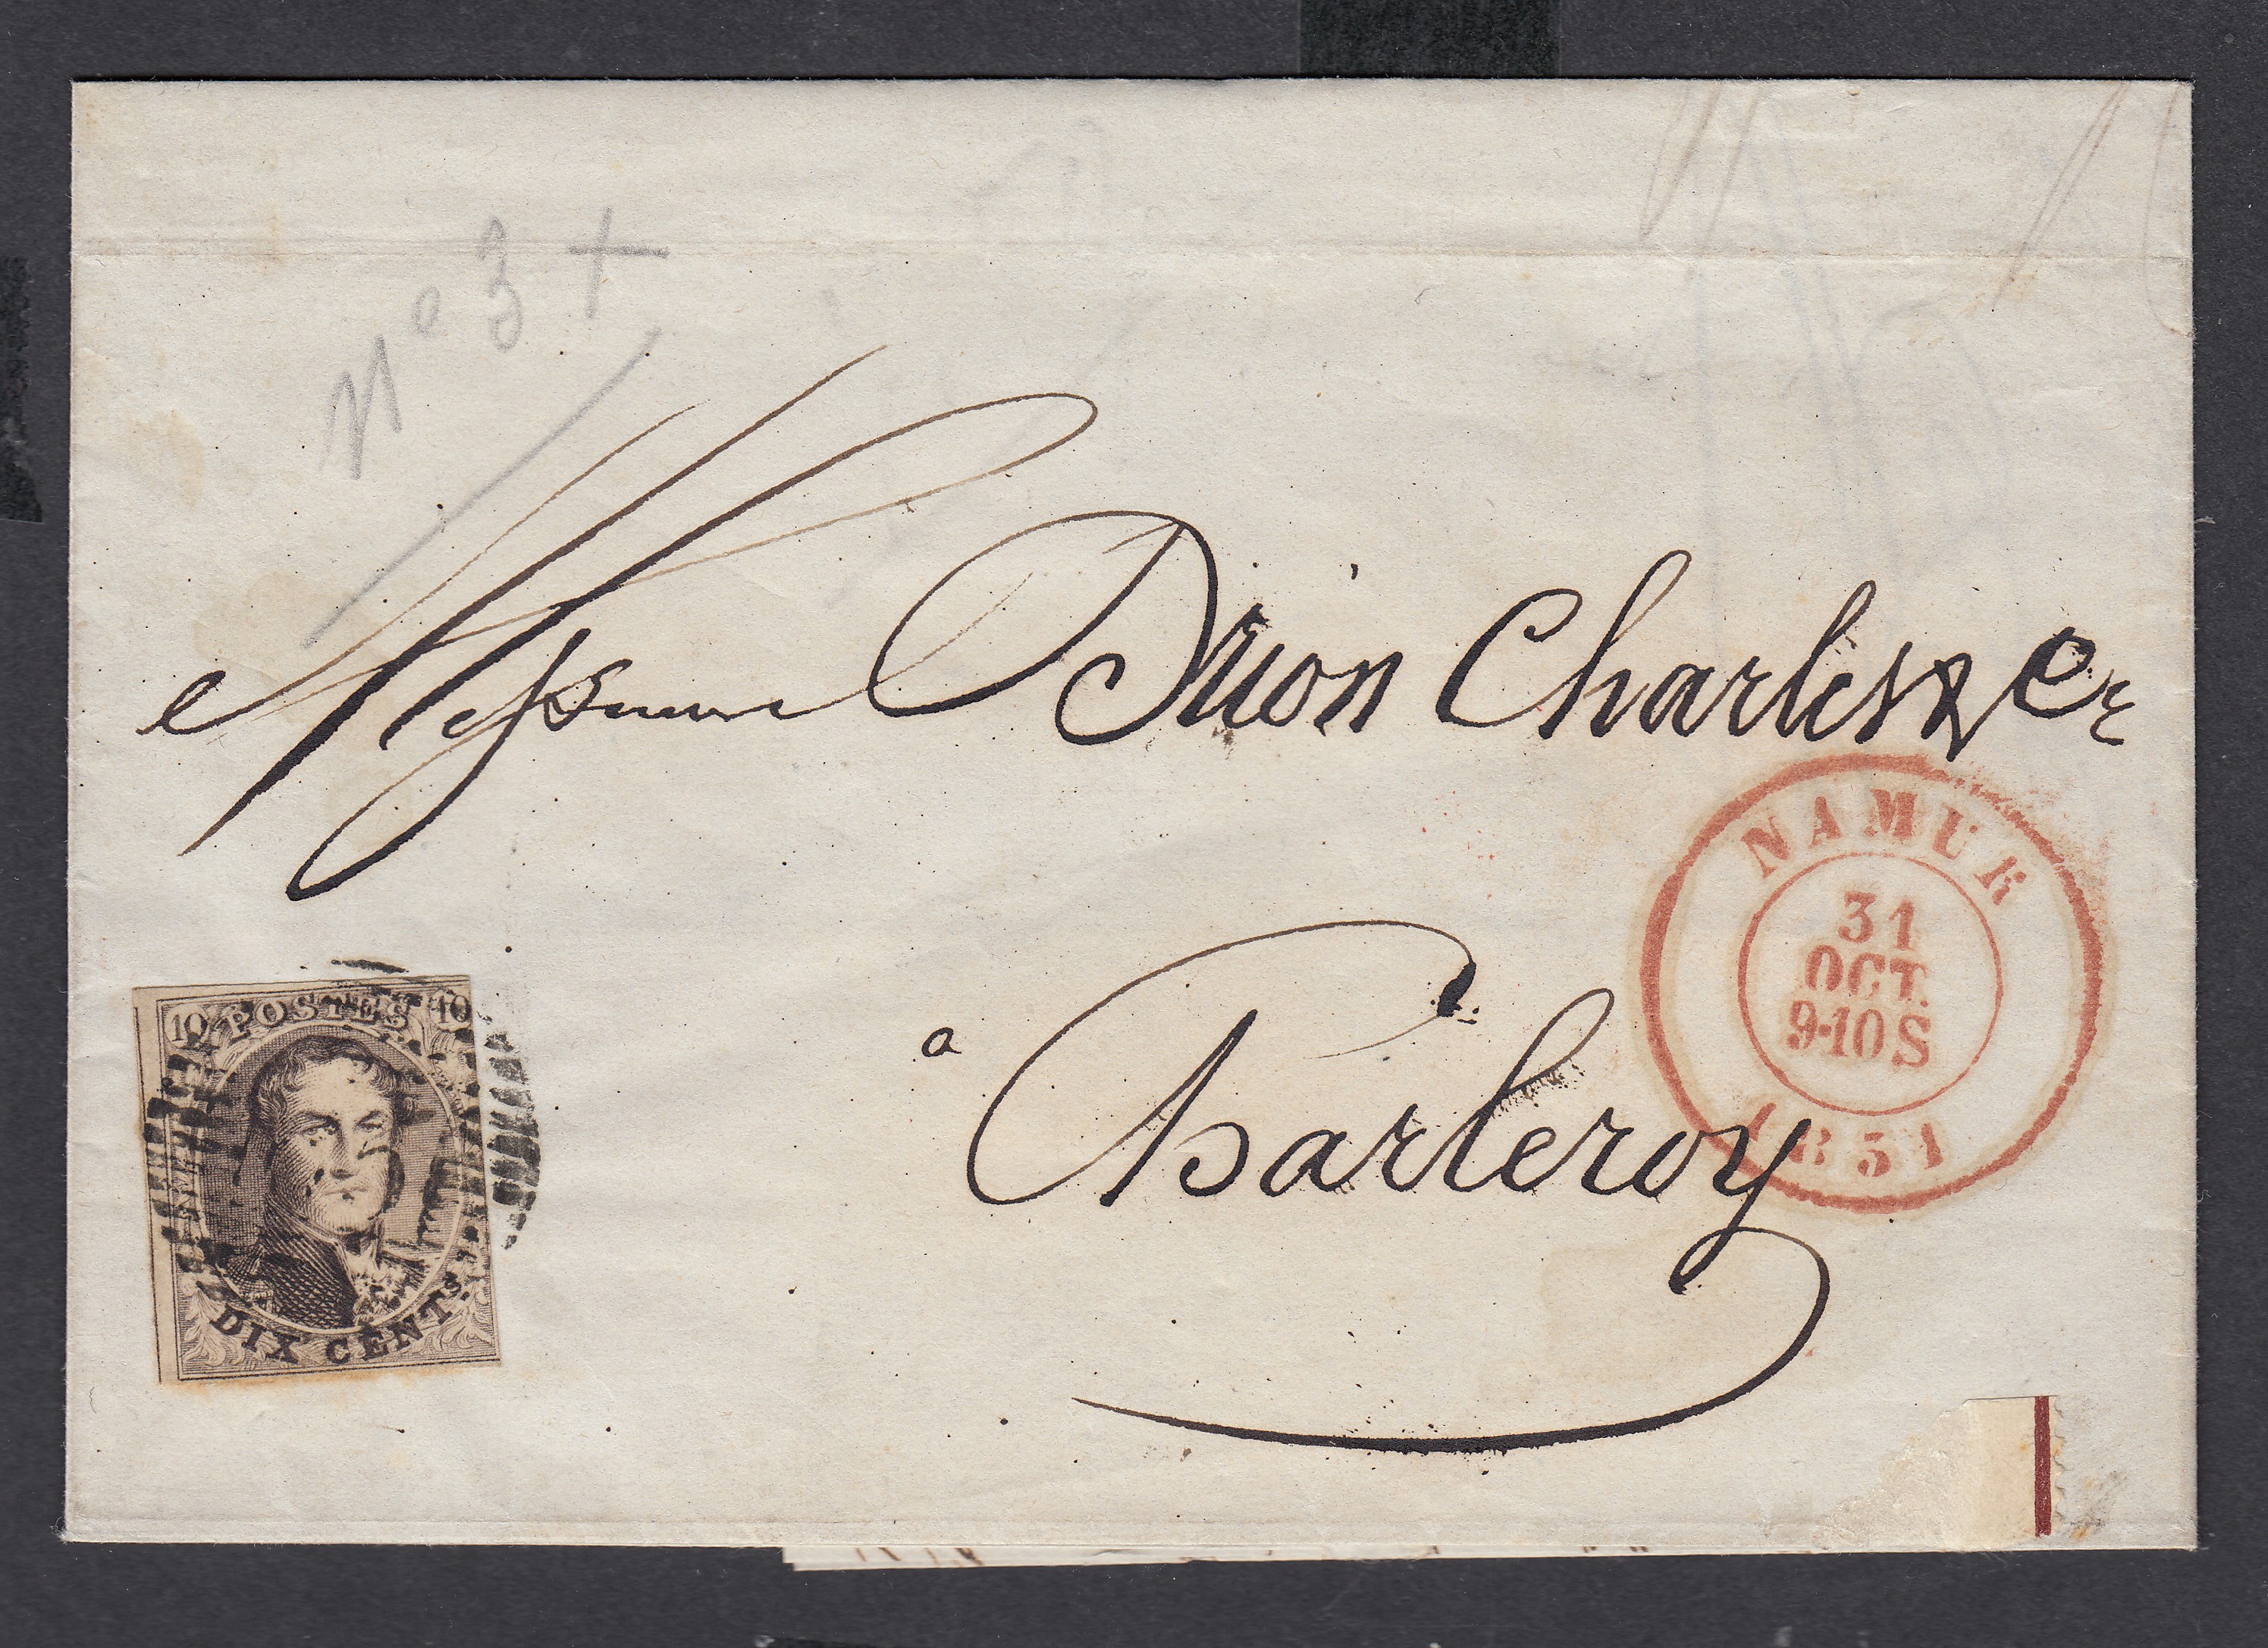 No 3 +
Messieurs Drion Charles & Cie
a
Charleroy
NAMUR
31
OCT.
9-10 S
1851
10 POSTES 10
DIX CENTS.